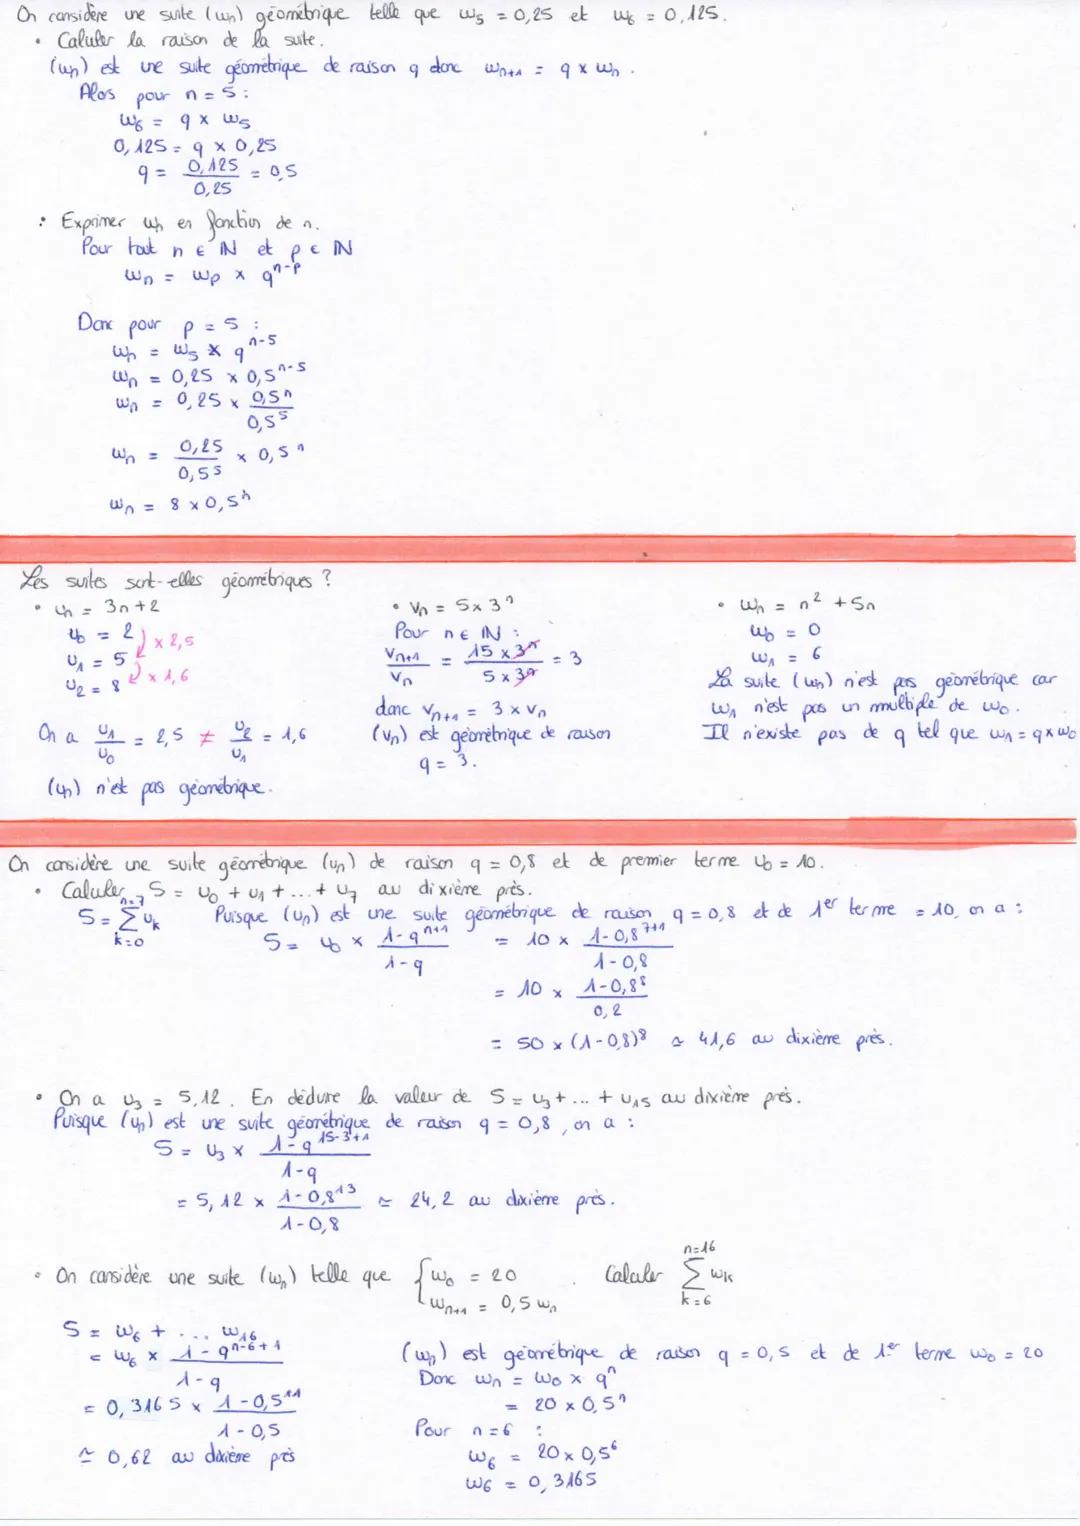 On considère une suite (wn) géométrique telle que w5 = 0,25 et w6 = 0,125.
• Calculer la raison de la suite.
(wn) est une suite géométrique de raison q donc wn+1 = q x wn.
Alors pour n = 5 :
w6 = q x w5
0,125 = q x 0,25
q = 0,125 / 0,25 = 0,5
• Exprimer wn en fonction de n.
Pour tout n ∈ IN et p ∈ IN
wn = wp x q^n-p
Donc pour p = 5 :
wn = w5 x q^n-5
wn = 0,25 x 0,5^n-5
wn = 0,25 x 0,5^n / 0,5^5
wn = 0,25 / 0,5^5 x 0,5^n
wn = 8 x 0,5^n
Les suites sont-elles géométriques ?
• un = 3n+2
u0 = 2
x 2,5
u1 = 5
x 1,6
u2 = 8
On a u1/u0 = 2,5 ≠ u2/u1 = 1,6
(un) n'est pas géométrique.
• Vn = 5x3^n
Pour n ∈ IN :
Vn+1 / Vn = 15 x 3^n / 5 x 3^n = 3
donc Vn+1 = 3 x Vn
(Vn) est géométrique de raison
q = 3.
• Wn = n² + 5n
w0 = 0
w1 = 6
La suite (wn) n'est pas géométrique car
w1 n'est pas un multiple de w0.
Il n'existe pas de q tel que w1 = q x w0
On considère une suite géométrique (un) de raison q = 0,8 et de premier terme u0 = 10.
• Calculer S = u0 + u1 + ... + u7 au dixième près.
S = Σ n=7 k=0 uk
Puisque (un) est une suite géométrique de raison q = 0,8 et de 1er terme = 10, on a :
S = u0 x 1-q^n+1 / 1-q = 10 x 1-0,8^7+1 / 1-0,8
= 10 x 1-0,8^8 / 0,2
= 50 x (1-0,8)^8 ≃ 41,6 au dixième près.
• On a u3 = 5,12. En déduire la valeur de S = u3 + ... + u15 au dixième près.
Puisque (un) est une suite géométrique de raison q = 0,8, on a :
S = u3 x 1-q^15-3+1 / 1-q
= 5,12 x 1-0,8^13 / 1-0,8 ≃ 24,2 au dixième près.
• On considère une suite (wn) telle que { w0 = 20
wn+1 = 0,5 wn .
Calculer Σ n=16 k=6 wk
S = w6 + ... w16
= w6 x 1-q^n-6+1 / 1-q
= 0,3165 x 1-0,5^11 / 1-0,5
≃ 0,62 au dixième près
(wn) est géométrique de raison q = 0,5 et de 1er terme w0 = 20
Donc wn = w0 x q^n
= 20 x 0,5^n
Pour n=6 :
w6 = 20 x 0,5^6
w6 = 0,3165